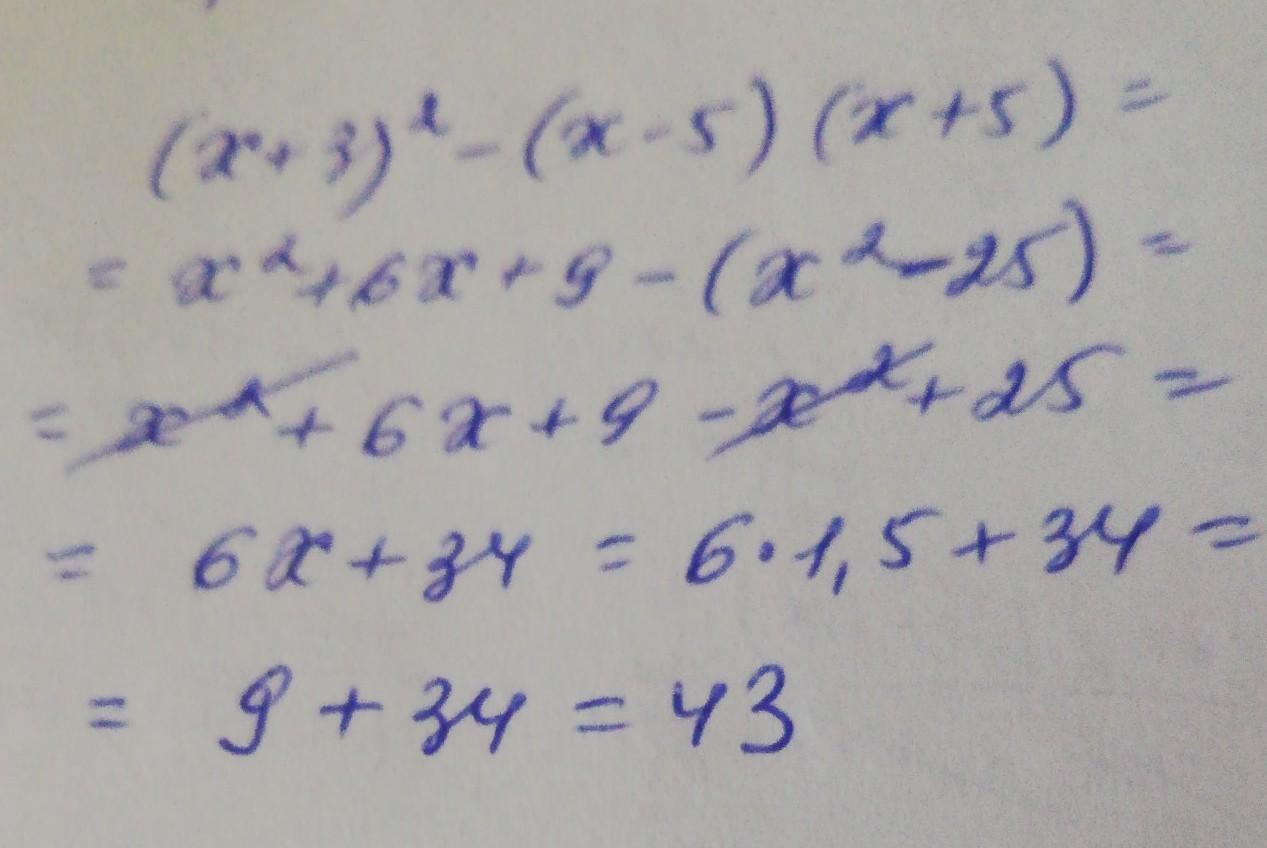 (x+3)² - (x-5)(x+5) =
= x² + 6x + 9 - (x² - 25) =
= x² + 6x + 9 - x² + 25 =
= 6x + 34 = 6·1,5 + 34 =
= 9 + 34 = 43